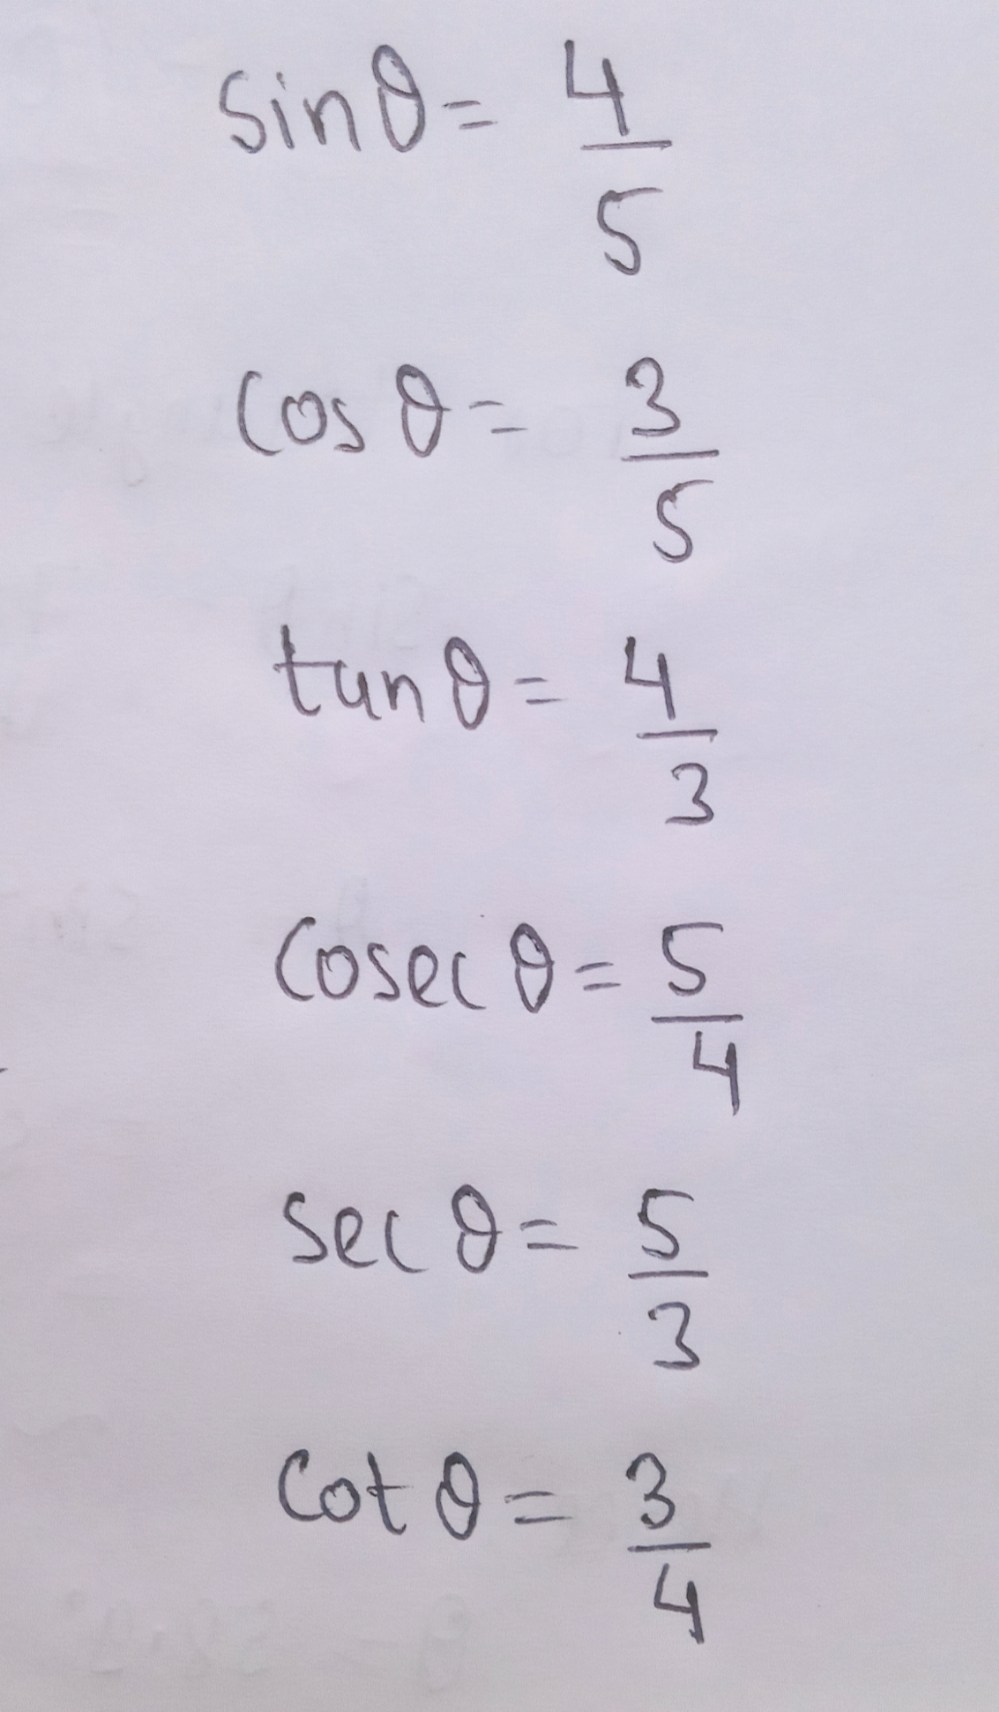 sinθ = 4/5
cos θ = 3/5
tan θ = 4/3
cosec θ = 5/4
sec θ = 5/3
cot θ = 3/4